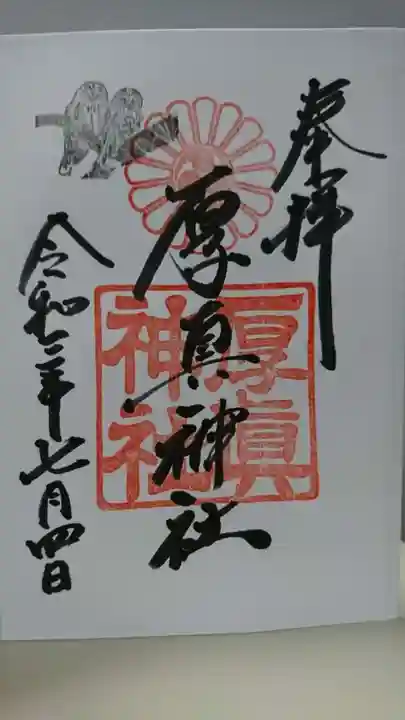 奉拝
厚真神社
厚眞
神社
令和二年七月四日